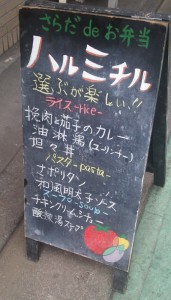 さらだ de お弁当
ハルミチル
選ぶが楽しい!!
ライス-rice-
挽肉と茄子のカレー
油淋鶏(ユーリンチー)
担々丼
パスタ-pasta-
ナポリタン
和風明太子ソース
スープ-soup-
チキンクリームシチュー
酸辣湯スープ